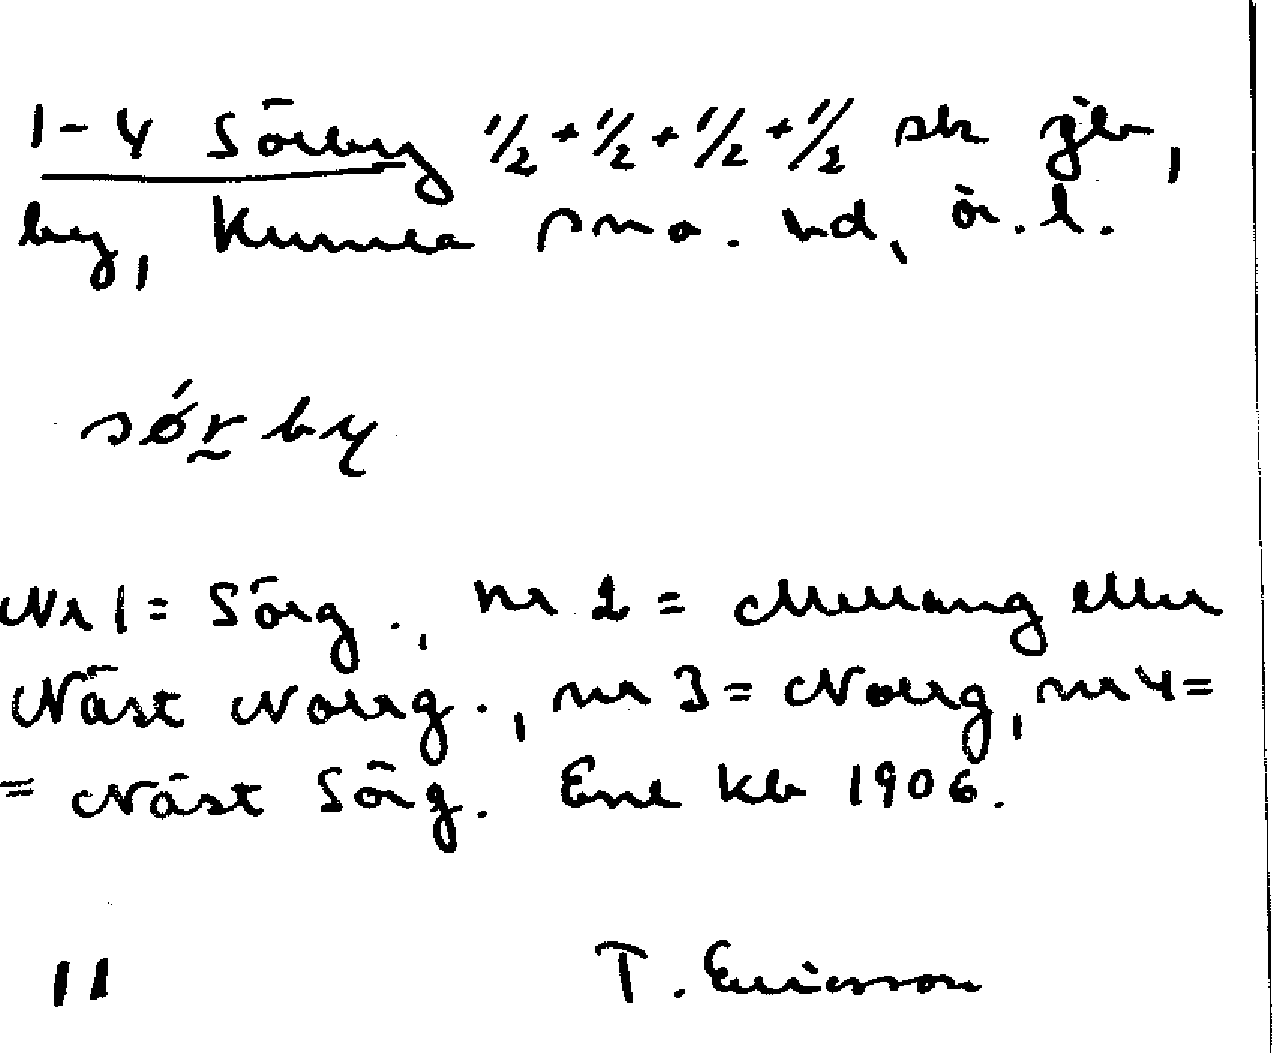 1-4 Sörby 1/2 + 1/2 + 1/2 + 1/2 sk jb,
by, Kumla sna. hd, ö. l.
sǿr̰by
Nr 1 = Sörg., nr 2 = Mellang eller
Näst Norrg., nr 3 = Norrg, nr 4 =
= Näst Sörg. Enl kb 1906.
11 T. Ericsson